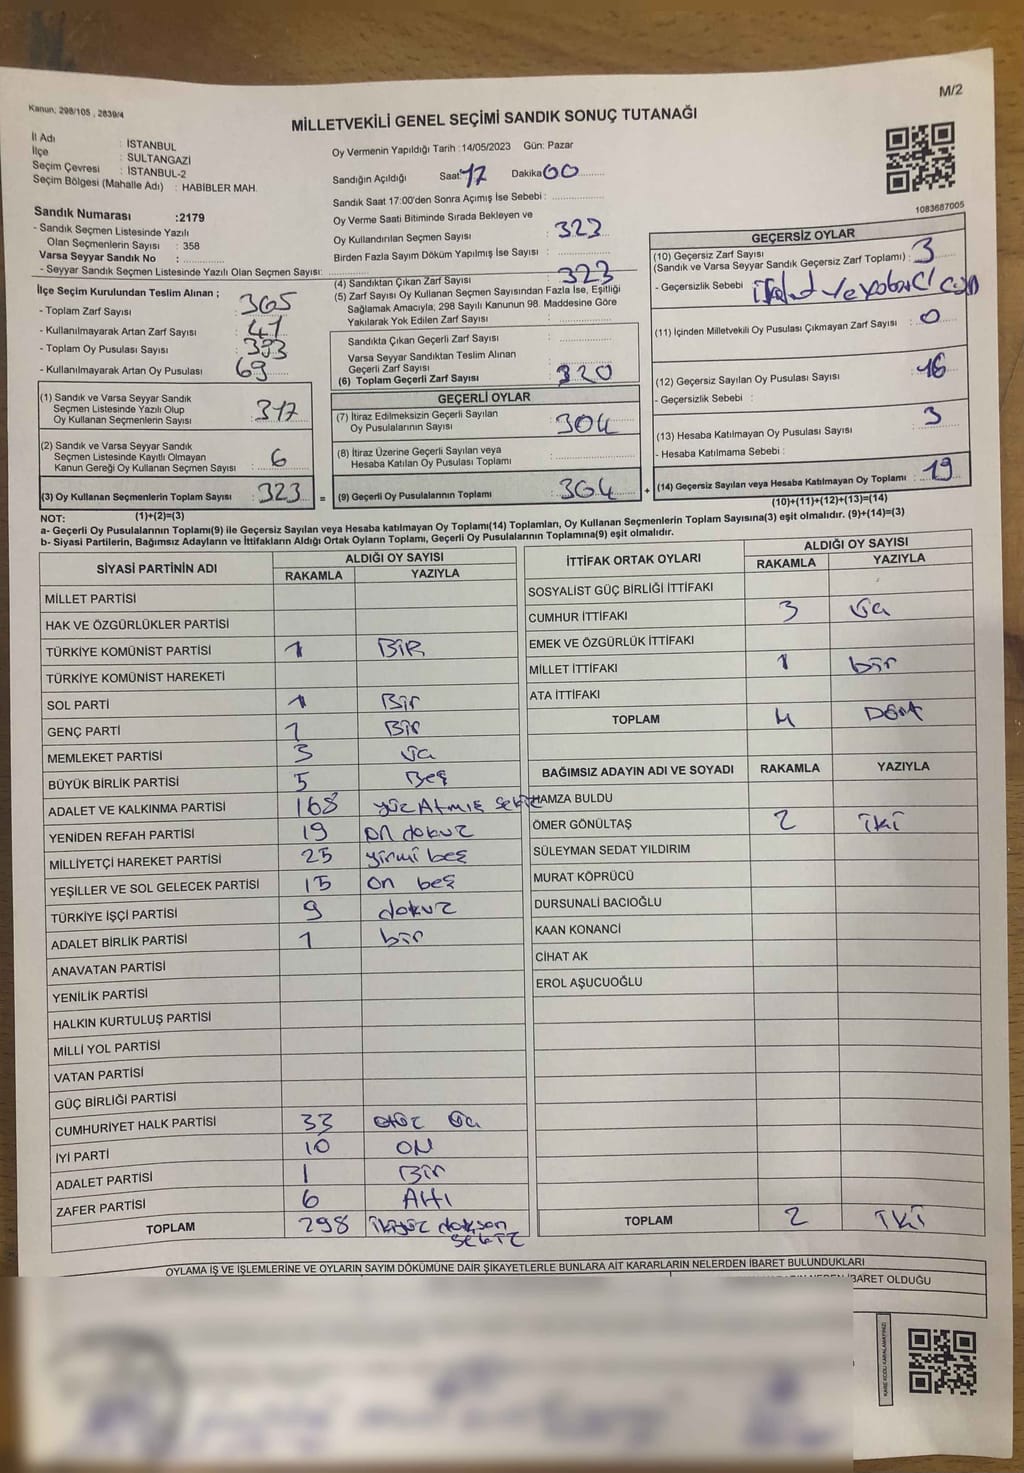 M/2
Kanun: 298/105 , 2839/4
MİLLETVEKİLİ GENEL SEÇİMİ SANDIK SONUÇ TUTANAĞI
İl Adı : İSTANBUL
İlçe : SULTANGAZİ
Seçim Çevresi : İSTANBUL-2
Seçim Bölgesi (Mahalle Adı) : HABİBLER MAH.
Sandık Numarası :2179
- Sandık Seçmen Listesinde Yazılı
Olan Seçmenlerin Sayısı : 358
Varsa Seyyar Sandık No :
- Seyyar Sandık Seçmen Listesinde Yazılı Olan Seçmen Sayısı:
Oy Vermenin Yapıldığı Tarih :14/05/2023 Gün: Pazar
Sandığın Açıldığı Saat 17 Dakika 00
Sandık Saat 17:00'den Sonra Açımış İse Sebebi :
Oy Verme Saati Bitiminde Sırada Bekleyen ve
Oy Kullandırılan Seçmen Sayısı : 323
Birden Fazla Sayım Döküm Yapılmış İse Sayısı :
1083687005
İlçe Seçim Kurulundan Teslim Alınan ;
- Toplam Zarf Sayısı : 365
- Kullanılmayarak Artan Zarf Sayısı : 41
- Toplam Oy Pusulası Sayısı : 393
- Kullanılmayarak Artan Oy Pusulası : 69
(1) Sandık ve Varsa Seyyar Sandık
Seçmen Listesinde Yazılı Olup
Oy Kullanan Seçmenlerin Sayısı : 317
(2) Sandık ve Varsa Seyyar Sandık
Seçmen Listesinde Kayıtlı Olmayan
Kanun Gereği Oy Kullanan Seçmen Sayısı : 6
(3) Oy Kullanan Seçmenlerin Toplam Sayısı : 323 =
(1)+(2)=(3)
(4) Sandıktan Çıkan Zarf Sayısı : 323
(5) Zarf Sayısı Oy Kullanan Seçmen Sayısından Fazla İse, Eşitliği
Sağlamak Amacıyla, 298 Sayılı Kanunun 98. Maddesine Göre
Yakılarak Yok Edilen Zarf Sayısı :
Sandıkta Çıkan Geçerli Zarf Sayısı :
Varsa Seyyar Sandıktan Teslim Alınan
Geçerli Zarf Sayısı :
(6) Toplam Geçerli Zarf Sayısı : 320
GEÇERLİ OYLAR
(7) İtiraz Edilmeksizin Geçerli Sayılan
Oy Pusulalarının Sayısı : 304
(8) İtiraz Üzerine Geçerli Sayılan veya
Hesaba Katılan Oy Pusulası Toplamı :
(9) Geçerli Oy Pusulalarının Toplamı : 304 +
GEÇERSİZ OYLAR
(10) Geçersiz Zarf Sayısı
(Sandık ve Varsa Seyyar Sandık Geçersiz Zarf Toplamı) : 3
- Geçersizlik Sebebi :
(11) İçinden Milletvekili Oy Pusulası Çıkmayan Zarf Sayısı : 0
(12) Geçersiz Sayılan Oy Pusulası Sayısı : 16
- Geçersizlik Sebebi :
(13) Hesaba Katılmayan Oy Pusulası Sayısı : 3
- Hesaba Katılmama Sebebi :
(14) Geçersiz Sayılan veya Hesaba Katılmayan Oy Toplamı : 19
(10)+(11)+(12)+(13)=(14)
NOT:
a- Geçerli Oy Pusulasının Toplamı(9) ile Geçersiz Sayılan veya Hesaba katılmayan Oy Toplamı(14) Toplamları, Oy Kullanan Seçmenlerin Toplam Sayısına(3) eşit olmalıdır. (9)+(14)=(3)
b- Siyasi Partilerin, Bağımsız Adayların ve İttifakların Aldığı Ortak Oyların Toplamı, Geçerli Oy Pusulalarının Toplamına(9) eşit olmalıdır.
SİYASİ PARTİNİN ADI ALDIĞI OY SAYISI
RAKAMLA YAZIYLA
MİLLET PARTİSİ
HAK VE ÖZGÜRLÜKLER PARTİSİ
TÜRKİYE KOMÜNİST PARTİSİ 1 BİR
TÜRKİYE KOMÜNİST HAREKETİ
SOL PARTİ 1 Bir
GENÇ PARTİ 1 Bir
MEMLEKET PARTİSİ 3 üç
BÜYÜK BİRLİK PARTİSİ 5 Beş
ADALET VE KALKINMA PARTİSİ 168 yüz Atmış sekiz
YENİDEN REFAH PARTİSİ 19 on dokuz
MİLLİYETÇİ HAREKET PARTİSİ 25 yirmi beş
YEŞİLLER VE SOL GELECEK PARTİSİ 15 on beş
TÜRKİYE İŞÇİ PARTİSİ 9 dokuz
ADALET BİRLİK PARTİSİ 1 bir
ANAVATAN PARTİSİ
YENİLİK PARTİSİ
HALKIN KURTULUŞ PARTİSİ
MİLLİ YOL PARTİSİ
VATAN PARTİSİ
GÜÇ BİRLİĞİ PARTİSİ
CUMHURİYET HALK PARTİSİ 33 otuz üç
İYİ PARTİ 10 ON
ADALET PARTİSİ 1 Bir
ZAFER PARTİSİ 6 Altı
TOPLAM 298 ikiyüz doksan
sekiz
İTTİFAK ORTAK OYLARI ALDIĞI OY SAYISI
RAKAMLA YAZIYLA
SOSYALİST GÜÇ BİRLİĞİ İTTİFAKI
CUMHUR İTTİFAKI 3 üç
EMEK VE ÖZGÜRLÜK İTTİFAKI
MİLLET İTTİFAKI 1 bir
ATA İTTİFAKI
TOPLAM 4 Dört
BAĞIMSIZ ADAYIN ADI VE SOYADI RAKAMLA YAZIYLA
HAMZA BULDU
ÖMER GÖNÜLTAŞ 2 iki
SÜLEYMAN SEDAT YILDIRIM
MURAT KÖPRÜCÜ
DURSUNALİ BACIOĞLU
KAAN KONANCİ
CİHAT AK
EROL AŞUCUOĞLU
TOPLAM 2 iki
OYLAMA İŞ VE İŞLEMLERİNE VE OYLARIN SAYIM DÖKÜMÜNE DAİR ŞİKAYETLERLE BUNLARA AİT KARARLARIN NELERDEN İBARET BULUNDUKLARI
İBARET OLDUĞU